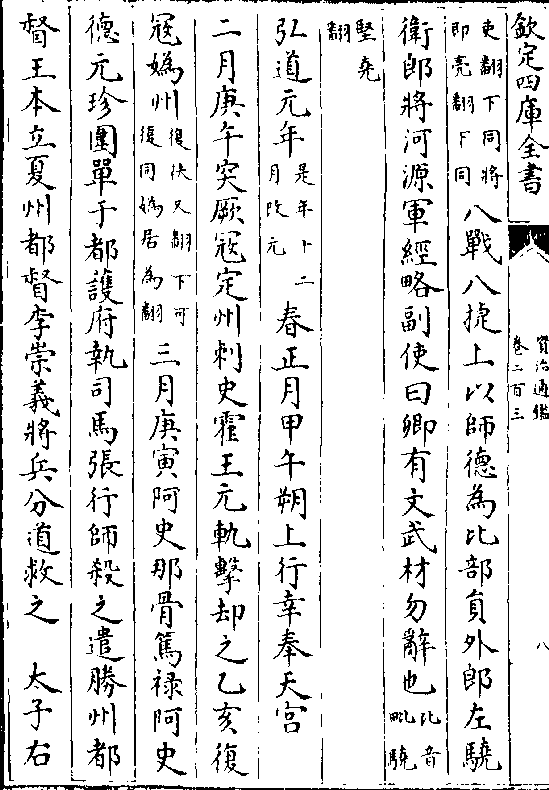 欽定四庫全書
資治通鑑
卷二百三
八
吏翻下同將
即亮翻下同
八戰八捷上以師德為比部員外郎左驍
衛郎將河源軍經略副使曰卿有文武材勿辭也
比音
毗驍
堅堯
翻
弘道元年
是年十二
月改元
春正月甲午朔上行幸奉天宫
二月庚午突厥寇定州刺史霍王元軌擊却之乙亥復
寇媯州
復扶又翻下可
復同媯居為翻
三月庚寅阿史那骨篤禄阿史
德元珍圍單于都護府執司馬張行師殺之遣勝州都
督王本立夏州都督李崇義將兵分道救之　太子右